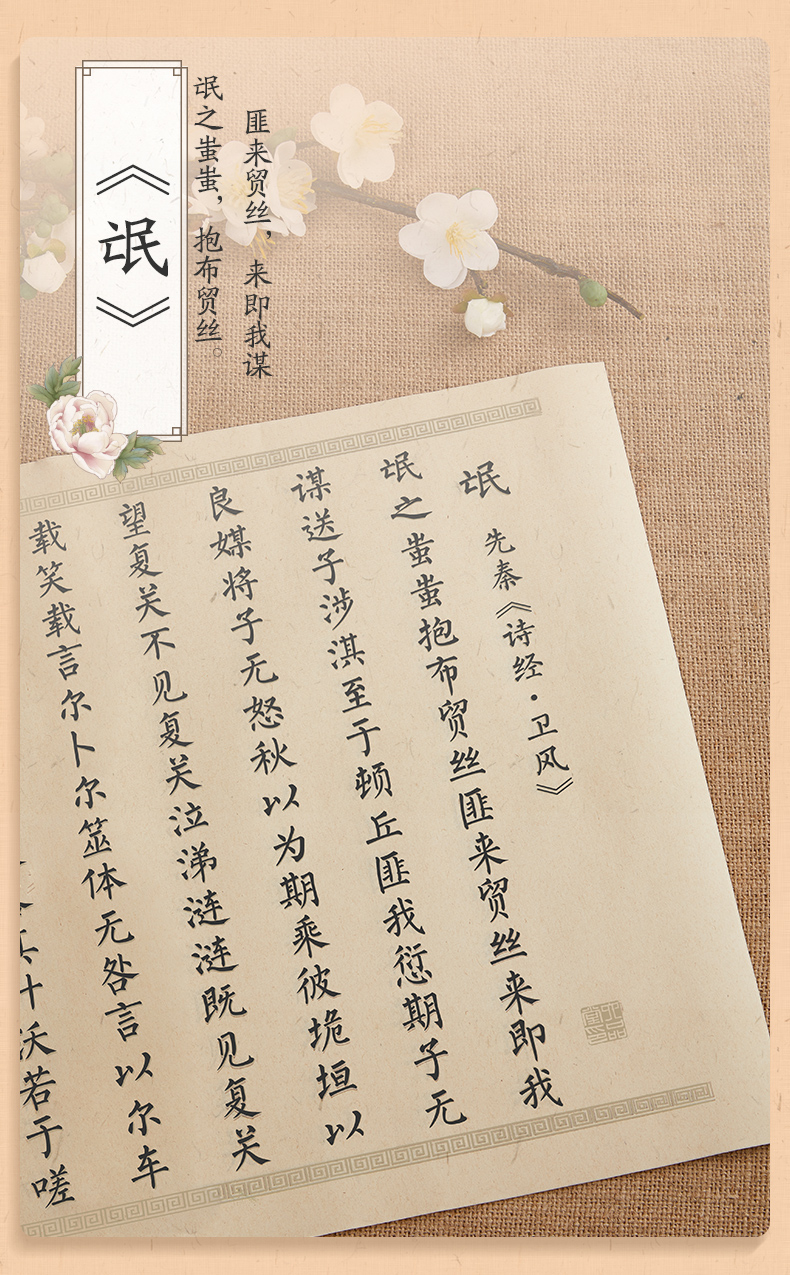 《氓》
氓之蚩蚩，抱布贸丝。
匪来贸丝，来即我谋
氓 先秦《诗经·卫风》
氓之蚩蚩抱布贸丝匪来贸丝来即我
谋送子涉淇至于顿丘匪我愆期子无
良媒将子无怒秋以为期乘彼垝垣以
望复关不见复关泣涕涟涟既见复关
载笑载言尔卜尔筮体无咎言以尔车
沃若于嗟